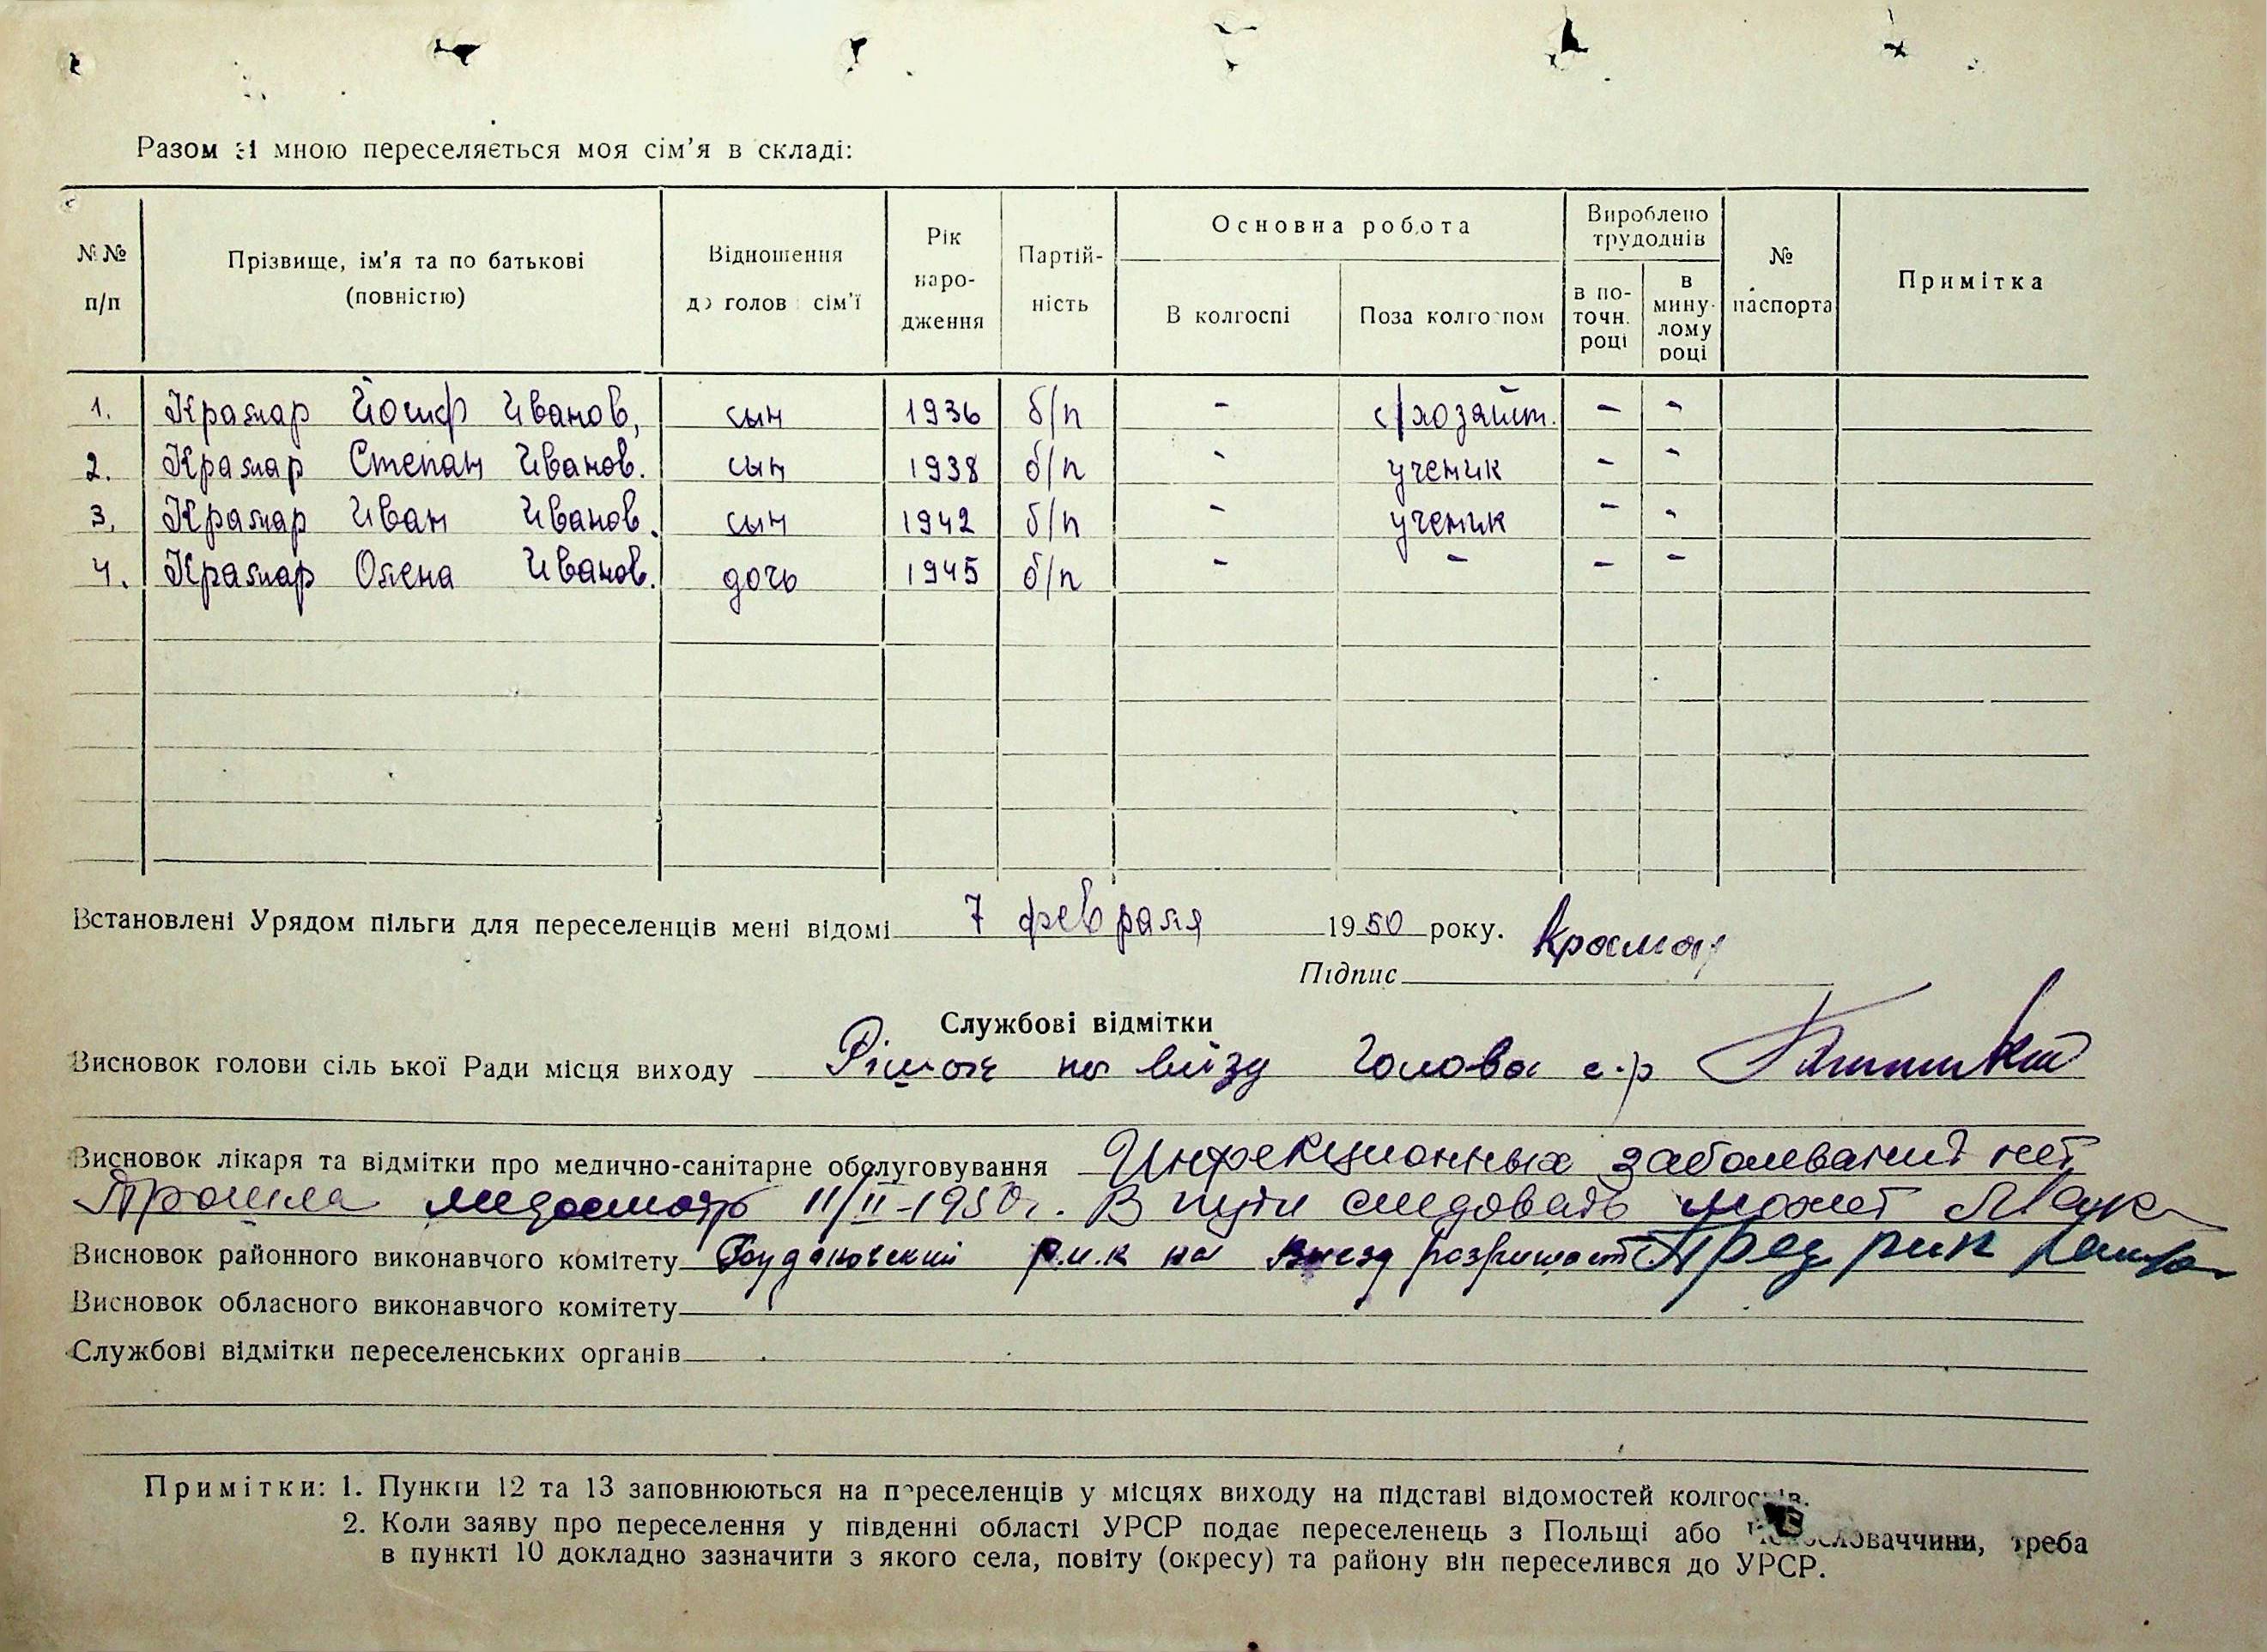 Разом зі мною переселяється моя сім'я в складі:
№№ п/п
Прізвище, ім'я та по батькові (повністю)
Відношення до голови сім'ї
Рік народження
Партійність
Основна робота
В колгоспі
Поза колгоспом
Вироблено трудоднів
в поточн. році
в минулому році
№ паспорта
Примітка
1. Крамар Йосиф Иванов, сын 1936 б/п - с/хозяйст. - -
2. Крамар Степан Иванов. сын 1938 б/п - ученик - -
3. Крамар Иван Иванов. сын 1942 б/п - ученик - -
4. Крамар Олена Иванов. дочь 1945 б/п - - - -
Встановлені Урядом пільги для переселенців мені відомі 7 февраля 1950 року.
Підпис Крамар
Службові відмітки
Висновок голови сільської Ради місця виходу Рішає на виїзд Голова с.р
Висновок лікаря та відмітки про медично-санітарне обслуговування Инфекционных заболеваний нет
Прошла медосмотр 11/II-1950г. В пути следовать может
Висновок районного виконавчого комітету Будановский р.и.к на выезд Пред рик
Висновок обласного виконавчого комітету
Службові відмітки переселенських органів
Примітки: 1. Пункти 12 та 13 заповнюються на переселенців у місцях виходу на підставі відомостей колгоспів.
2. Коли заяву про переселення у південні області УРСР подає переселенець з Польщі або Чехословаччини, треба
в пункті 10 докладно зазначити з якого села, повіту (окресу) та району він переселився до УРСР.